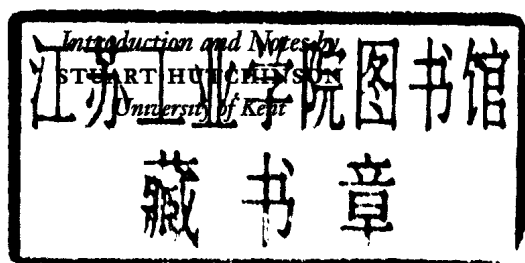 Introduction and Notes by
STUART HUTCHINSON
University of Kent
江苏工业学院图书馆
藏书章